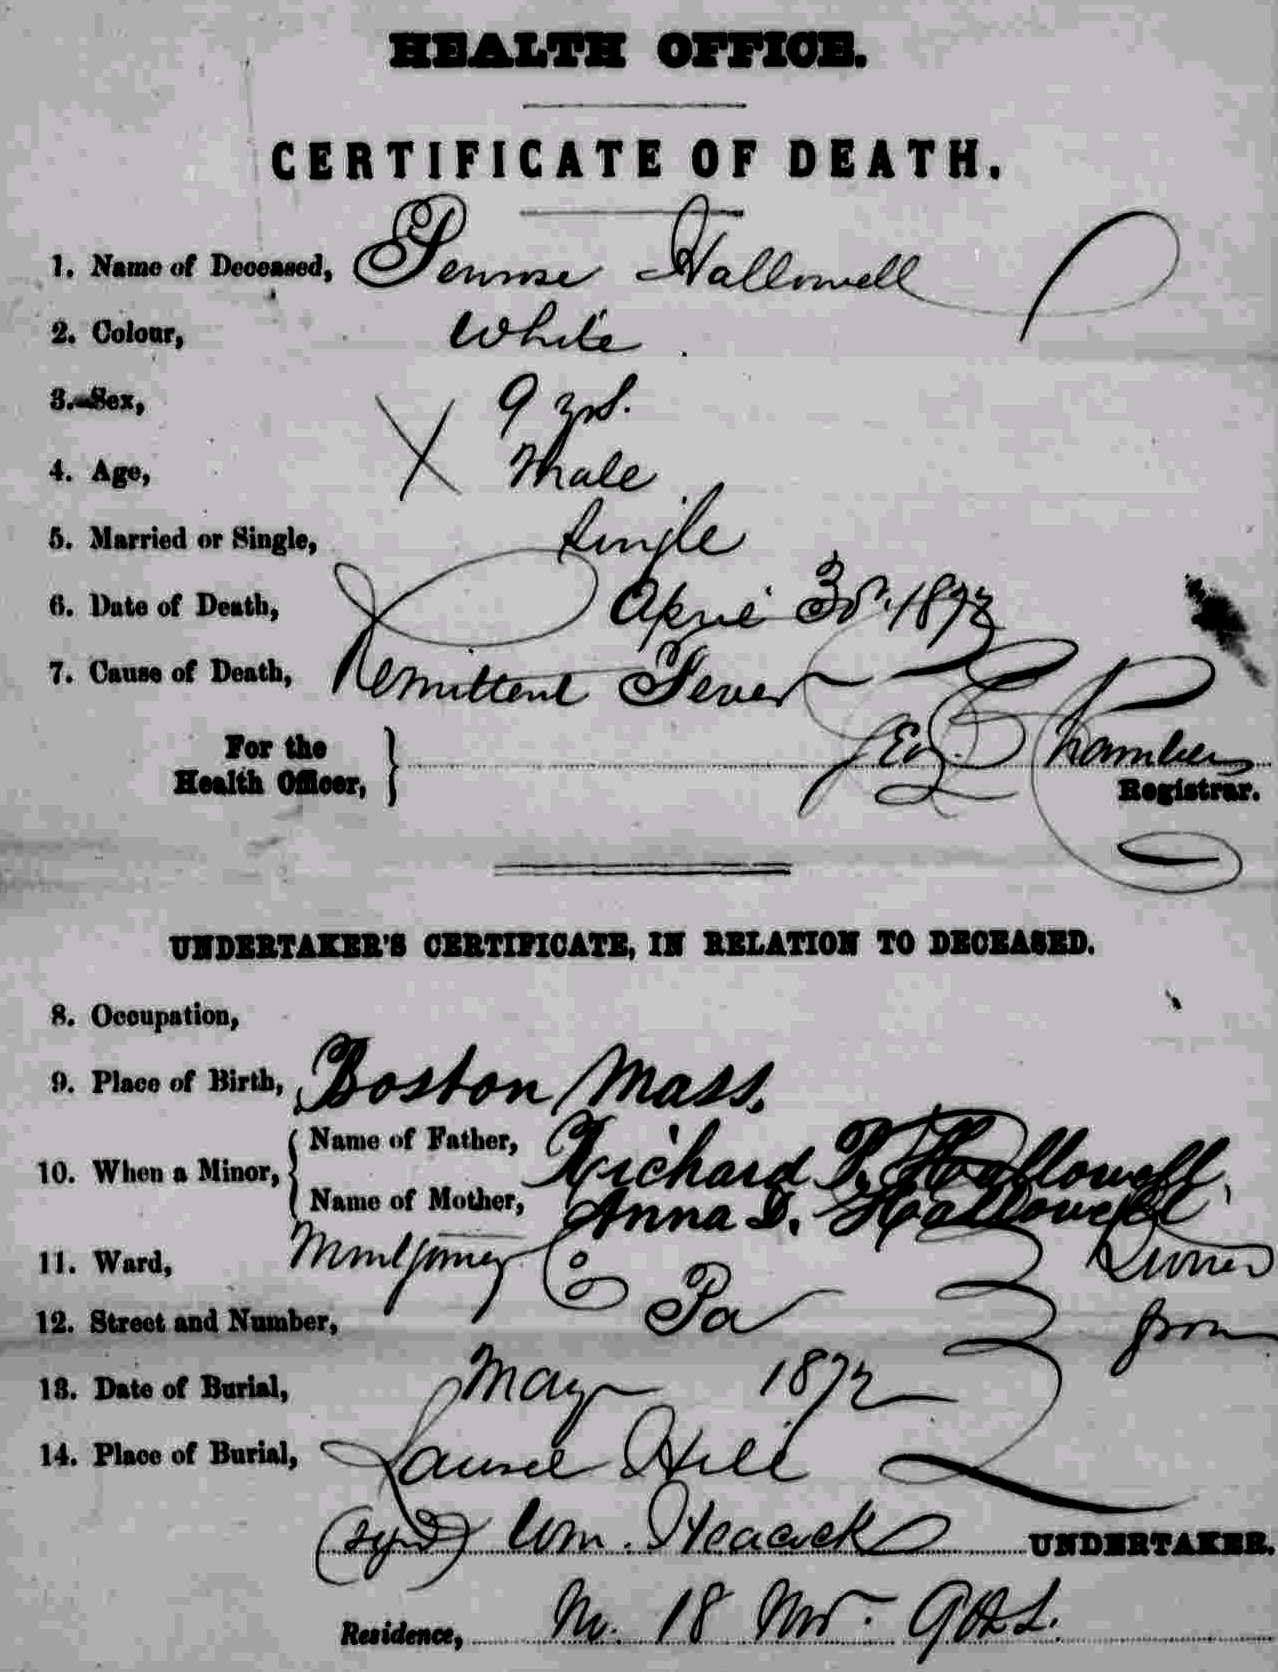 HEALTH OFFICE.
CERTIFICATE OF DEATH.
1. Name of Deceased, Penrose Hallowell
2. Colour, White
3. Sex, 9 yrs.
4. Age, X Male
5. Married or Single, Single
6. Date of Death, April 30. 1872
7. Cause of Death, Remittent Fever
For the
Health Officer, } Geo. E. Chambers
Registrar.
UNDERTAKER'S CERTIFICATE, IN RELATION TO DECEASED.
8. Occupation,
9. Place of Birth, Boston Mass.
10. When a Minor, { Name of Father, Richard P. Hallowell
Name of Mother, Anna D. Hallowell
11. Ward, Montgomery Co
12. Street and Number, Pa from
13. Date of Burial, May 1872
14. Place of Burial, Laurel Hill
(sgd) Wm. Heacock UNDERTAKER.
Residence, No. 18